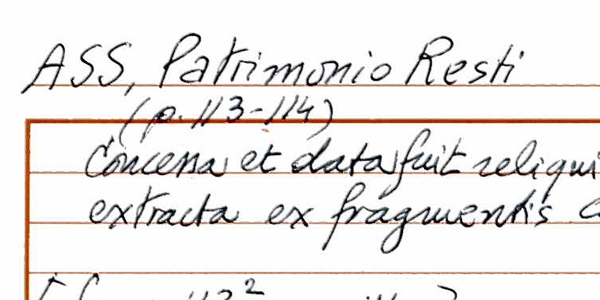 ASS, Patrimonio Resti
(p. 113-114)
Concessa et data fuit reliqui
extracta ex fragmentis